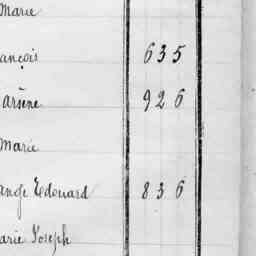 Marie
ançois 635
arsène 926
Marie
ange Edouard 836
arie Joseph